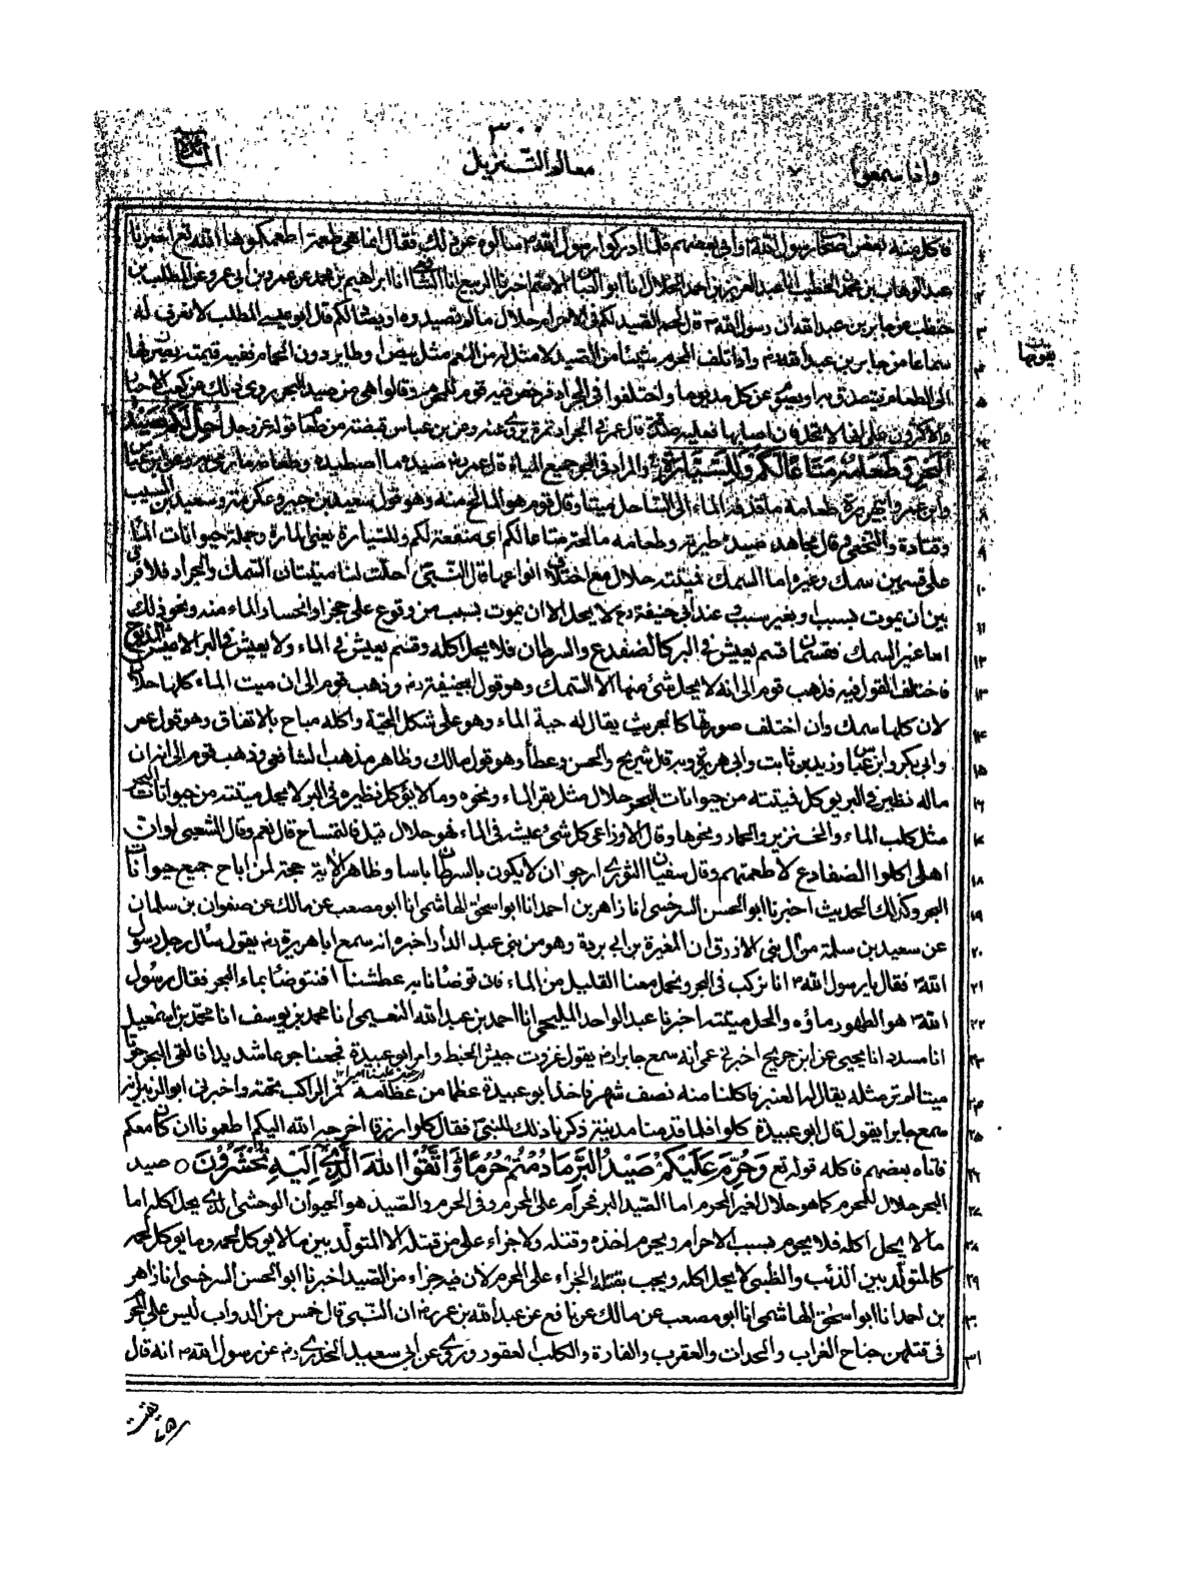 ٣٠٠
واذا سمعوا معالم التنزيل
فاكل منه بعض اصحاب رسول الله ۳ وابى بعضهم فلما ادركوا رسول الله ۳ سالوه عن ذلك فقال انما هى طعمة اطعمكموها الله تع اخبرنا
عبد الوهاب بن محمد الخطيب انا عبد العزيز بن احمد الخلال انا ابو العباس الاصم اخبرنا الربيع انا الشافعى انا ابراهيم بن محمد عن عمرو بن ابى عمرو عن المطلب بن
حنطب عن جابر بن عبد الله ان رسول الله ۳ قال لحم الصيد لكم فى الاحرام حلال ما لم تصيدوه او يصاد لكم قال ابو عيسى المطلب لا نعرف له
سماعا من جابر بن عبد الله رض واذا تلف المحرم شيئا من الصيد لا مثل له من النعم مثل بيض او طاير دون الحمام ففيه قيمته يصرفها
الى الطعام فيتصدق به او يصوم عن كل مد يوما واختلفوا فى الجراد فرخص فيه قوم للمحرم وقالوا هو من صيد البحر روى ذلك عن كعب الاحبار
والاكثرون على انها لا تحل فان اصابها فعليه صدقة قال عمر فى الجراد تمرة وروى عنه وعن بن عباس قبضة من طعام قوله عز وجل أُحِلَّ لَكُمْ صَيْدُ
الْبَحْرِ وَطَعَامُهُ مَتَاعًا لَكُمْ وَلِلسَّيَّارَةِ والمراد فى البحر جميع المياه قال عمر رض صيده ما اصطيد وطعامه ما رمى به وعن ابن عباس
وابن عمر وابى هريرة طعامه ما قذفه الماء الى الساحل ميتا وقال قوم هو المالح منه وهو قول سعيد بن جبير وعكرمة وسعيد بن المسيب
وقتادة والنخعى وقال مجاهد صيده طيرية وطعامه مالحة متاعا لكم اى منفعة لكم وللسيارة يعنى المارة وجملة حيوانات الماء
على قسمين سمك وغيره اما السمك فميتته حلال مع اختلاف انواعها قال النبى احلت لنا ميتتان السمك والجراد فلا فرق
بين ان يموت بسبب او بغير سبب عند ابى حنيفة رح لا يحل الا ان يموت بسبب من وقوع على حجر او انحسار الماء منه ونحو ذلك
اما غير السمك فقسمان قسم يعيش فى البر كالضفدع والسرطان فلا يحل اكله وقسم يعيش فى الماء ولا يعيش فى البر الا عيش المذبوح
فاختلف القول فيه فذهب قوم الى انه لا يحل شئ منها الا السمك وهو قول ابى حنيفة رح وذهب قوم الى ان ميت الماء كلها حلال
لان كلها سمك وان اختلف صورتها كالجريث يقال له حية الماء وهو على شكل الحية واكله مباح بالاتفاق وهو قول عمر
وابى بكر وابن عباس وزيد بن ثابت وابى هريرة وبه قال شريح والحسن وعطاء وهو قول مالك وظاهر مذهب الشافعى وذهب قوم الى ان
ماله نظير فى البر يوكل فميتته من حيوانات البحر حلال مثل بقر الماء ونحوه وما لا يوكل نظيره فى البر لا يحل ميتته من حيوانات البحر
مثل كلب الماء والخنزير والحمار ونحوها وقال الاوزاعى كل شئ عيشه فى الماء فهو حلال قيل فالتمساح قال نعم وقال الشعبى لو ان
اهلى اكلوا الضفادع لاطعمتهم وقال سفيان الثورى ارجو ان لا يكون بالسرطان باسا وظاهر الاية حجة لمن اباح جميع حيوانات
البحر وكذلك الحديث اخبرنا ابو الحسن السرخسى انا زاهر بن احمد انا ابو اسحق الهاشمى انا ابو مصعب عن مالك عن صفوان بن سلمان
عن سعيد بن سلمة مولى بنى الازرق ان المغيرة بن ابى بردة وهو من بنى عبد الدار اخبره انه سمع اباهريرة رض يقول سأل رجل رسول
الله ۳ فقال يا رسول الله ۳ انا نركب فى البحر ونحمل معنا القليل من الماء فان توضأنا به عطشنا افنتوضأ بماء البحر فقال رسول
الله ۳ هو الطهور ماؤه والحل ميتته اخبرنا عبد الواحد المليحى انا احمد بن عبد الله النعيمى انا محمد بن يوسف انا محمد بن اسمعيل
انا مسدد انا يحيى عن ابن جريج اخبرنى عمرو انه سمع جابرا رض يقول غزوت جيش الخبط وامر ابو عبيدة فجعنا جوعا شديدا فالقى البحر حوتا
ميتا لم نر مثله يقال له العنبر فاكلنا منه نصف شهر فاخذ ابو عبيدة عظما من عظامه فمر الراكب تحته واخبرنى ابو الزبير انه
سمع جابرا يقول قال ابو عبيدة كلوا فلما قدمنا مدينة ذكرنا ذلك للنبى فقال كلوا رزقا اخرجه الله اليكم اطعمونا ان كان معكم
فاتاه بعضهم فاكله قوله تع وَحُرِّمَ عَلَيْكُمْ صَيْدُ الْبَرِّ مَا دُمْتُمْ حُرُمًا وَاتَّقُوا اللهَ الَّذِى إِلَيْهِ تُحْشَرُونَ ○ صيد
البحر حلال للمحرم كما هو حلال لغير المحرم اما الصيد البر فحرام على المحرم وفى الحرم والصيد هو الحيوان الوحشى الذى يحل اكله اما
ما لا يحل اكله فلا يحرم بسبب الاحرام ويحرم اخذه وقتله ولا جزاء على من قتله الا المتولد بين ما لا يوكل لحمه وما يوكل لحمه
كالمتولد بين الذئب والظبى لا يحل اكله ويجب بقتله الجزاء على المحرم لان فيه جزاء من الصيد اخبرنا ابو الحسن السرخسى انا زاهر
بن احمد انا ابو اسحق الهاشمى انا ابو مصعب عن مالك عن نافع عن عبد الله بن عمر رض ان النبى قال خمس من الدواب ليس على المحرم
فى قتلهن جناح الغراب والحدأت والعقرب والفارة والكلب العقور وروى عن ابى سعيد الخدرى رض عن رسول الله ۳ انه قال